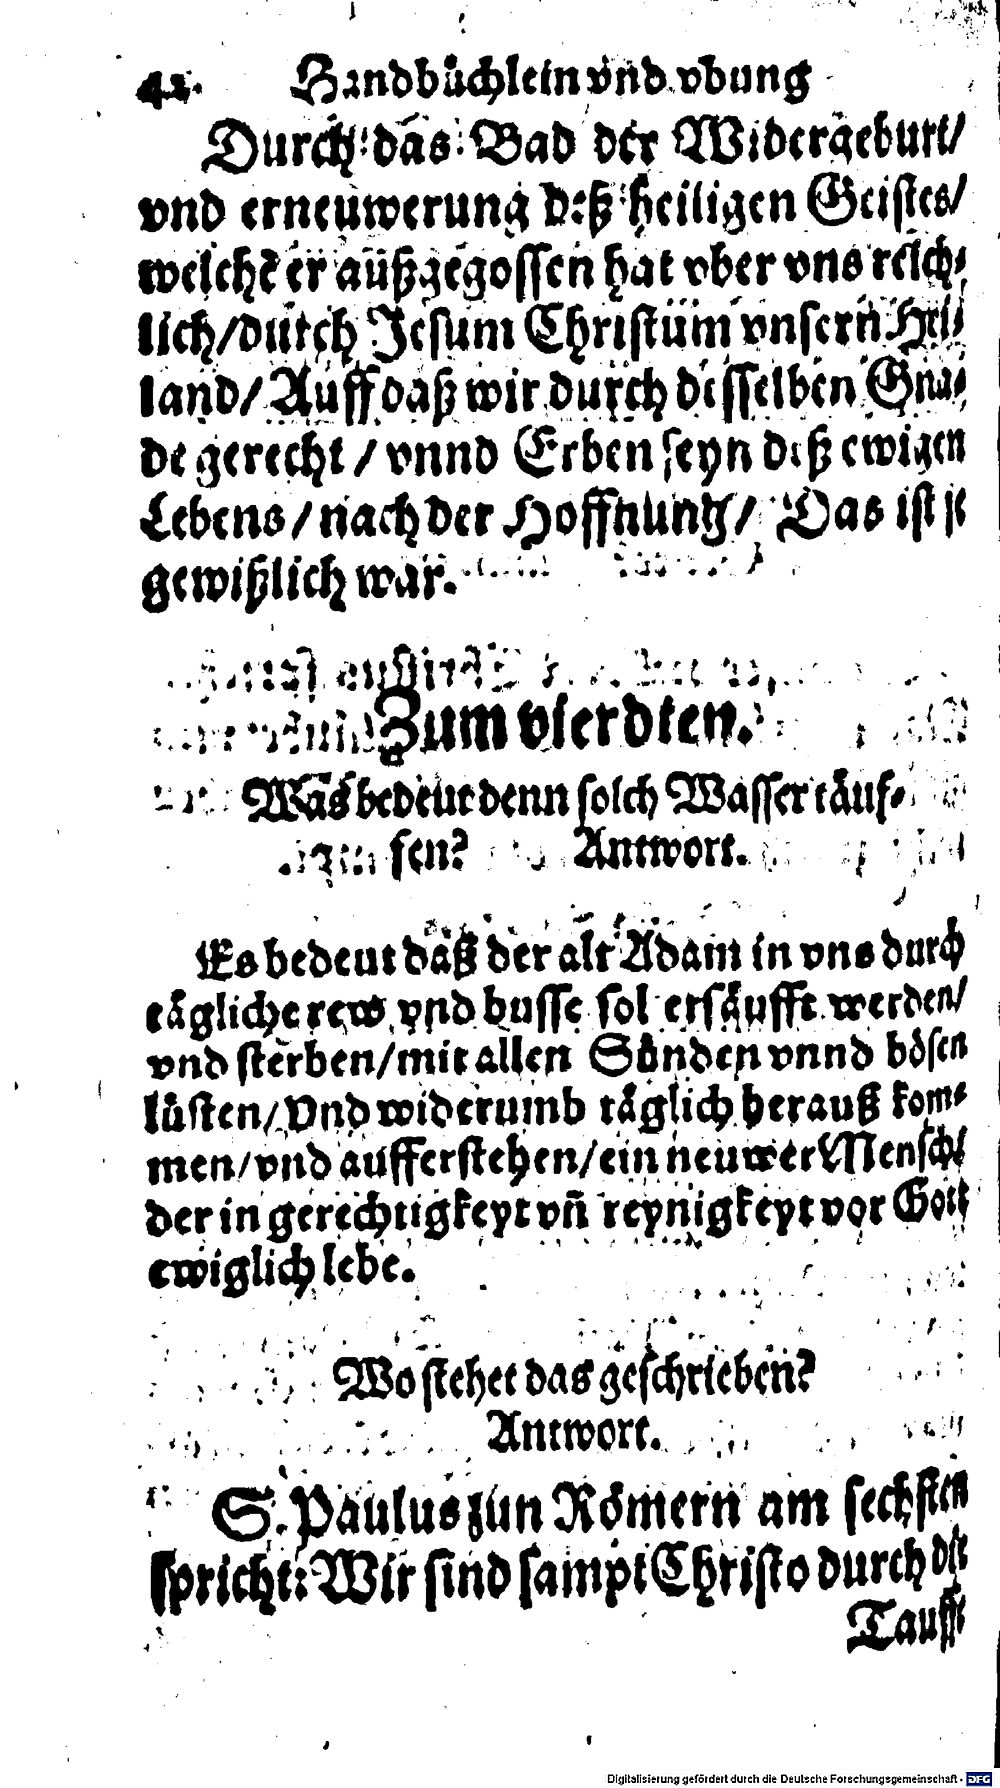 42. Handbüchlein vnd vbung
Durch das Bad der Widergeburt/
vnd erneuwerung deß heiligen Geistes/
welche er außgegossen hat vber vns reich⸗
lich/durch Jesum Christum vnsern Hei⸗
land/ Auff daß wir durch desselben Gna⸗
de gerecht / vnnd Erben seyn deß ewigen
Lebens / nach der Hoffnung/ Das ist je
gewißlich war.
Zum vierdten.
Was bedeut denn solch Wasser täuf⸗
fen? Antwort.
Es bedeut daß der alt Adam in vns durch
tägliche rew vnd busse sol ersäufft werden/
vnd sterben/mit allen Sünden vnnd bösen
lüsten/Vnd widerumb täglich herauß kom⸗
men/vnd aufferstehen/ein neuwer Mensch/
der in gerechtigkeyt vñ reynigkeyt vor Gott
ewiglich lebe.
Wo stehet das geschrieben?
Antwort.
S. Paulus zun Römern am sechsten
spricht: Wir sind sampt Christo durch die
Tauffe
Digitalisierung gefördert durch die Deutsche Forschungsgemeinschaft - DFG